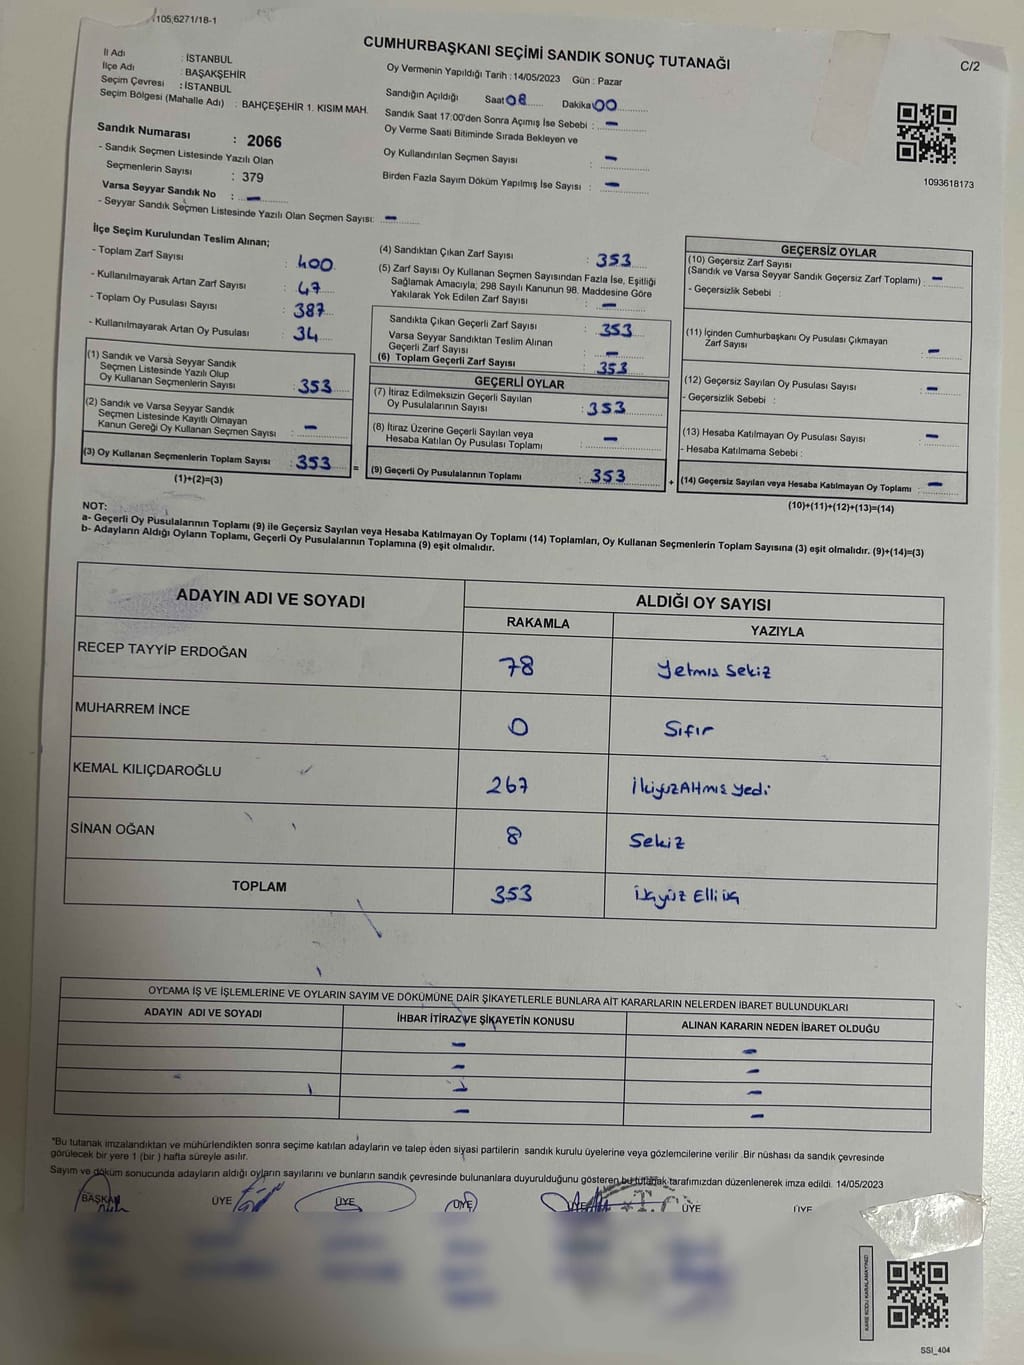 105,6271/18-1
CUMHURBAŞKANI SEÇİMİ SANDIK SONUÇ TUTANAĞI
C/2
İl Adı : İSTANBUL
İlçe Adı : BAŞAKŞEHİR
Seçim Çevresi : İSTANBUL
Seçim Bölgesi (Mahalle Adı) : BAHÇEŞEHİR 1. KISIM MAH.
Sandık Numarası : 2066
- Sandık Seçmen Listesinde Yazılı Olan
Seçmenlerin Sayısı : 379
Varsa Seyyar Sandık No : -
- Seyyar Sandık Seçmen Listesinde Yazılı Olan Seçmen Sayısı: -
Oy Vermenin Yapıldığı Tarih : 14/05/2023 Gün : Pazar
Sandığın Açıldığı Saat 08 Dakika 00
Sandık Saat 17:00'den Sonra Açımış İse Sebebi : -
Oy Verme Saati Bitiminde Sırada Bekleyen ve
Oy Kullandırılan Seçmen Sayısı : -
Birden Fazla Sayım Döküm Yapılmış İse Sayısı : -
1093618173
İlçe Seçim Kurulundan Teslim Alınan;
- Toplam Zarf Sayısı : 400
- Kullanılmayarak Artan Zarf Sayısı : 47
- Toplam Oy Pusulası Sayısı : 387
- Kullanılmayarak Artan Oy Pusulası : 34
(1) Sandık ve Varsa Seyyar Sandık
Seçmen Listesinde Yazılı Olup
Oy Kullanan Seçmenlerin Sayısı : 353
(2) Sandık ve Varsa Seyyar Sandık
Seçmen Listesinde Kayıtlı Olmayan
Kanun Gereği Oy Kullanan Seçmen Sayısı : -
(3) Oy Kullanan Seçmenlerin Toplam Sayısı : 353
(1)+(2)=(3)
(4) Sandıktan Çıkan Zarf Sayısı : 353
(5) Zarf Sayısı Oy Kullanan Seçmen Sayısından Fazla İse, Eşitliği
Sağlamak Amacıyla, 298 Sayılı Kanunun 98. Maddesine Göre
Yakılarak Yok Edilen Zarf Sayısı : -
Sandıkta Çıkan Geçerli Zarf Sayısı : 353
Varsa Seyyar Sandıktan Teslim Alınan
Geçerli Zarf Sayısı : -
(6) Toplam Geçerli Zarf Sayısı : 353
GEÇERLİ OYLAR
(7) İtiraz Edilmeksizin Geçerli Sayılan
Oy Pusulalarının Sayısı : 353
(8) İtiraz Üzerine Geçerli Sayılan veya
Hesaba Katılan Oy Pusulası Toplamı : -
= (9) Geçerli Oy Pusulalarının Toplamı 353
GEÇERSİZ OYLAR
(10) Geçersiz Zarf Sayısı
(Sandık ve Varsa Seyyar Sandık Geçersiz Zarf Toplamı) : -
- Geçersizlik Sebebi :
(11) İçinden Cumhurbaşkanı Oy Pusulası Çıkmayan
Zarf Sayısı : -
(12) Geçersiz Sayılan Oy Pusulası Sayısı : -
- Geçersizlik Sebebi :
(13) Hesaba Katılmayan Oy Pusulası Sayısı : -
- Hesaba Katılmama Sebebi :
+ (14) Geçersiz Sayılan veya Hesaba Katılmayan Oy Toplamı : -
(10)+(11)+(12)+(13)=(14)
NOT:
a- Geçerli Oy Pusulalarının Toplamı (9) ile Geçersiz Sayılan veya Hesaba Katılmayan Oy Toplamı (14) Toplamları, Oy Kullanan Seçmenlerin Toplam Sayısına (3) eşit olmalıdır. (9)+(14)=(3)
b- Adayların Aldığı Oyların Toplamı, Geçerli Oy Pusulalarının Toplamına (9) eşit olmalıdır.
ADAYIN ADI VE SOYADI ALDIĞI OY SAYISI
RAKAMLA YAZIYLA
RECEP TAYYİP ERDOĞAN 78 Yetmış Sekiz
MUHARREM İNCE 0 Sıfır
KEMAL KILIÇDAROĞLU 267 İkiyüzAltmış Yedi
SİNAN OĞAN 8 Sekiz
TOPLAM 353 Üçyüz Elli üç
OYLAMA İŞ VE İŞLEMLERİNE VE OYLARIN SAYIM VE DÖKÜMÜNE DAİR ŞİKAYETLERLE BUNLARA AİT KARARLARIN NELERDEN İBARET BULUNDUKLARI
ADAYIN ADI VE SOYADI İHBAR İTİRAZ VE ŞİKAYETİN KONUSU ALINAN KARARIN NEDEN İBARET OLDUĞU
- -
- -
- -
- -
*Bu tutanak imzalandıktan ve mühürlendikten sonra seçime katılan adayların ve talep eden siyasi partilerin sandık kurulu üyelerine veya gözlemcilerine verilir .Bir nüshası da sandık çevresinde
görülecek bir yere 1 (bir ) hafta süreyle asılır.
Sayım ve döküm sonucunda adayların aldığı oyların sayılarını ve bunların sandık çevresinde bulunanlara duyurulduğunu gösteren bu tutanak tarafımızdan düzenlenerek imza edildi. 14/05/2023
BAŞKAN ÜYE ÜYE ÜYE ÜYE ÜYE ÜYE
KARE KODU KARALAMAYINIZ!
SSI_404